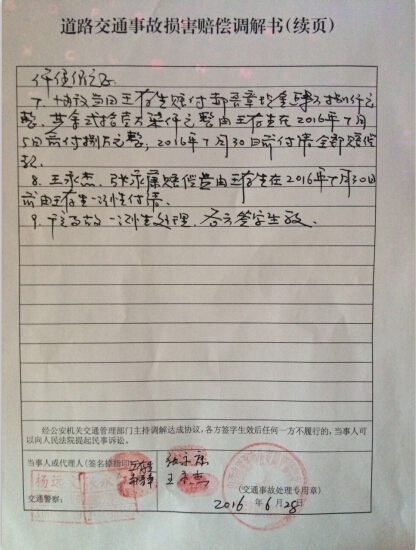 道路交通事故损害赔偿调解书(续页)
7. 协议当日王存生赔付郝晋章现金肆万捌仟元
整,其余贰拾壹万柒仟元整由王存生在2016年7月
5日前付捌万元整,2016年7月30日前付清全部赔偿
款。
8. 王永杰、张永康赔偿费由王存生在2016年7月30日
前由王存生一次性付清。
9. 该事故一次性处理,各方签字生效。
经公安机关交通管理部门主持调解达成协议,各方签字生效后任何一方不履行的,当事人可
以向人民法院提起民事诉讼。
当事人或代理人(签名捺指印)
张永康
王永杰
交通警察:
(交通事故处理专用章)
2016年6月28日